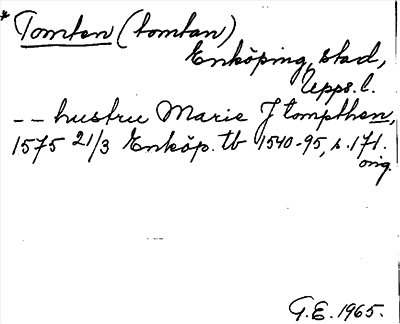 * Tomten (tomtan)
Enköping, stad,
Upps. l.
-- hustru Marie J tompthen,
1575 21/3 Enköp. tb 1540-95, s. 171.
orig.
G.E. 1965.